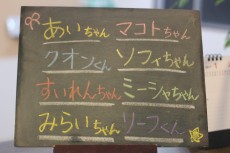 あいちゃん
クオンくん
すいれんちゃん
みらいちゃん
マコトちゃん
ソフィちゃん
ミーシャちゃん
リーフくん